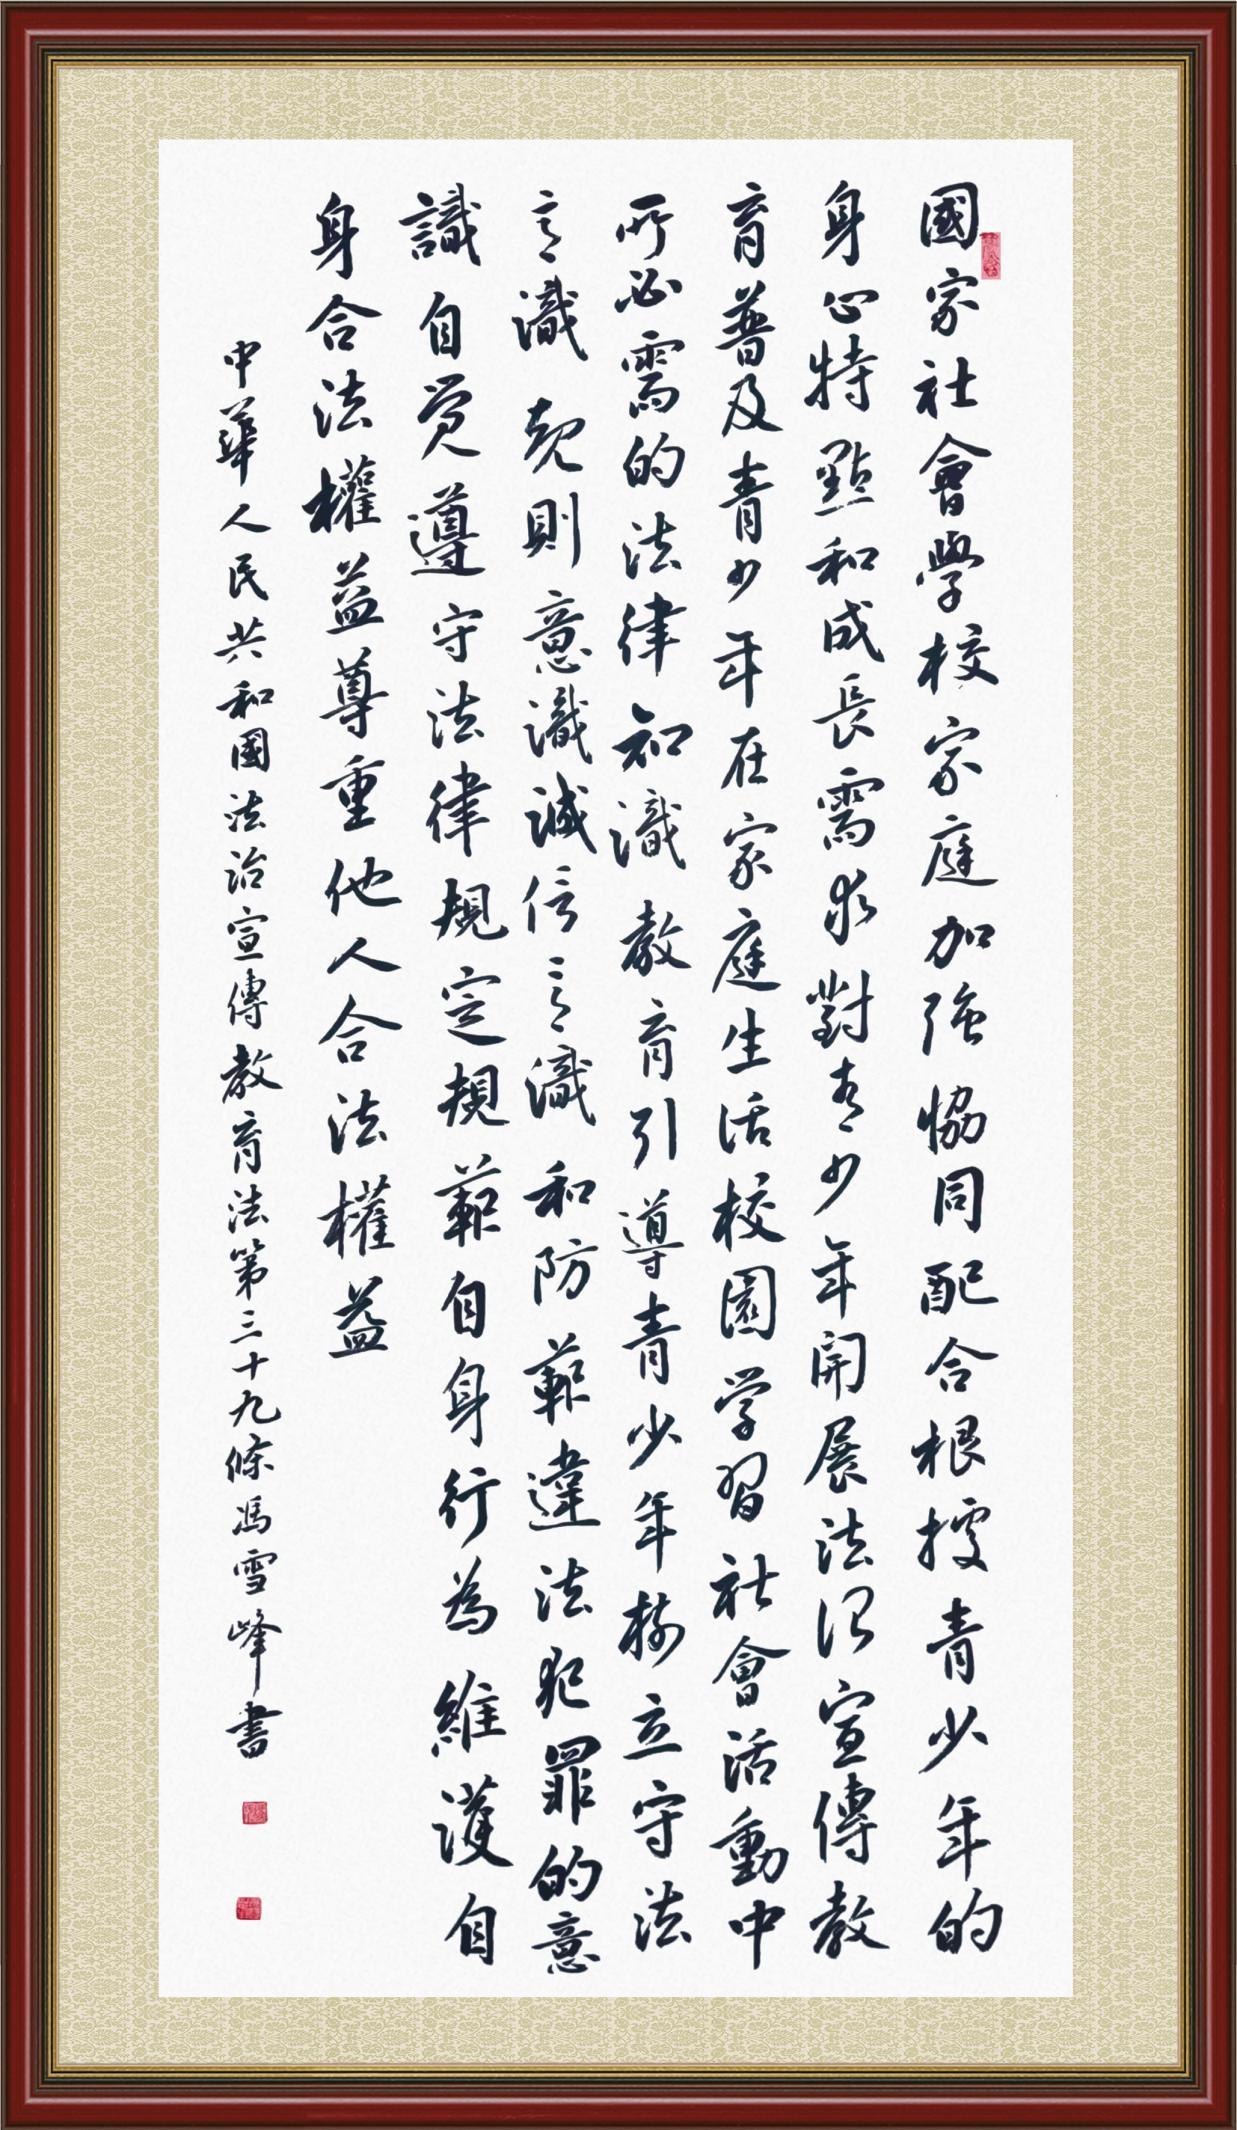 國家社會學校家庭加強協同配合根據青少年的
身心特點和成長需求對青少年開展法治宣傳教
育普及青少年在家庭生活校園学習社會活動中
所必需的法律知識教育引導青少年樹立守法
意識規則意識誠信意識和防範違法犯罪的意
識自覺遵守法律規定規範自身行為維護自
身合法權益尊重他人合法權益
中華人民共和國法治宣傳教育法第三十九條馮雪峰書